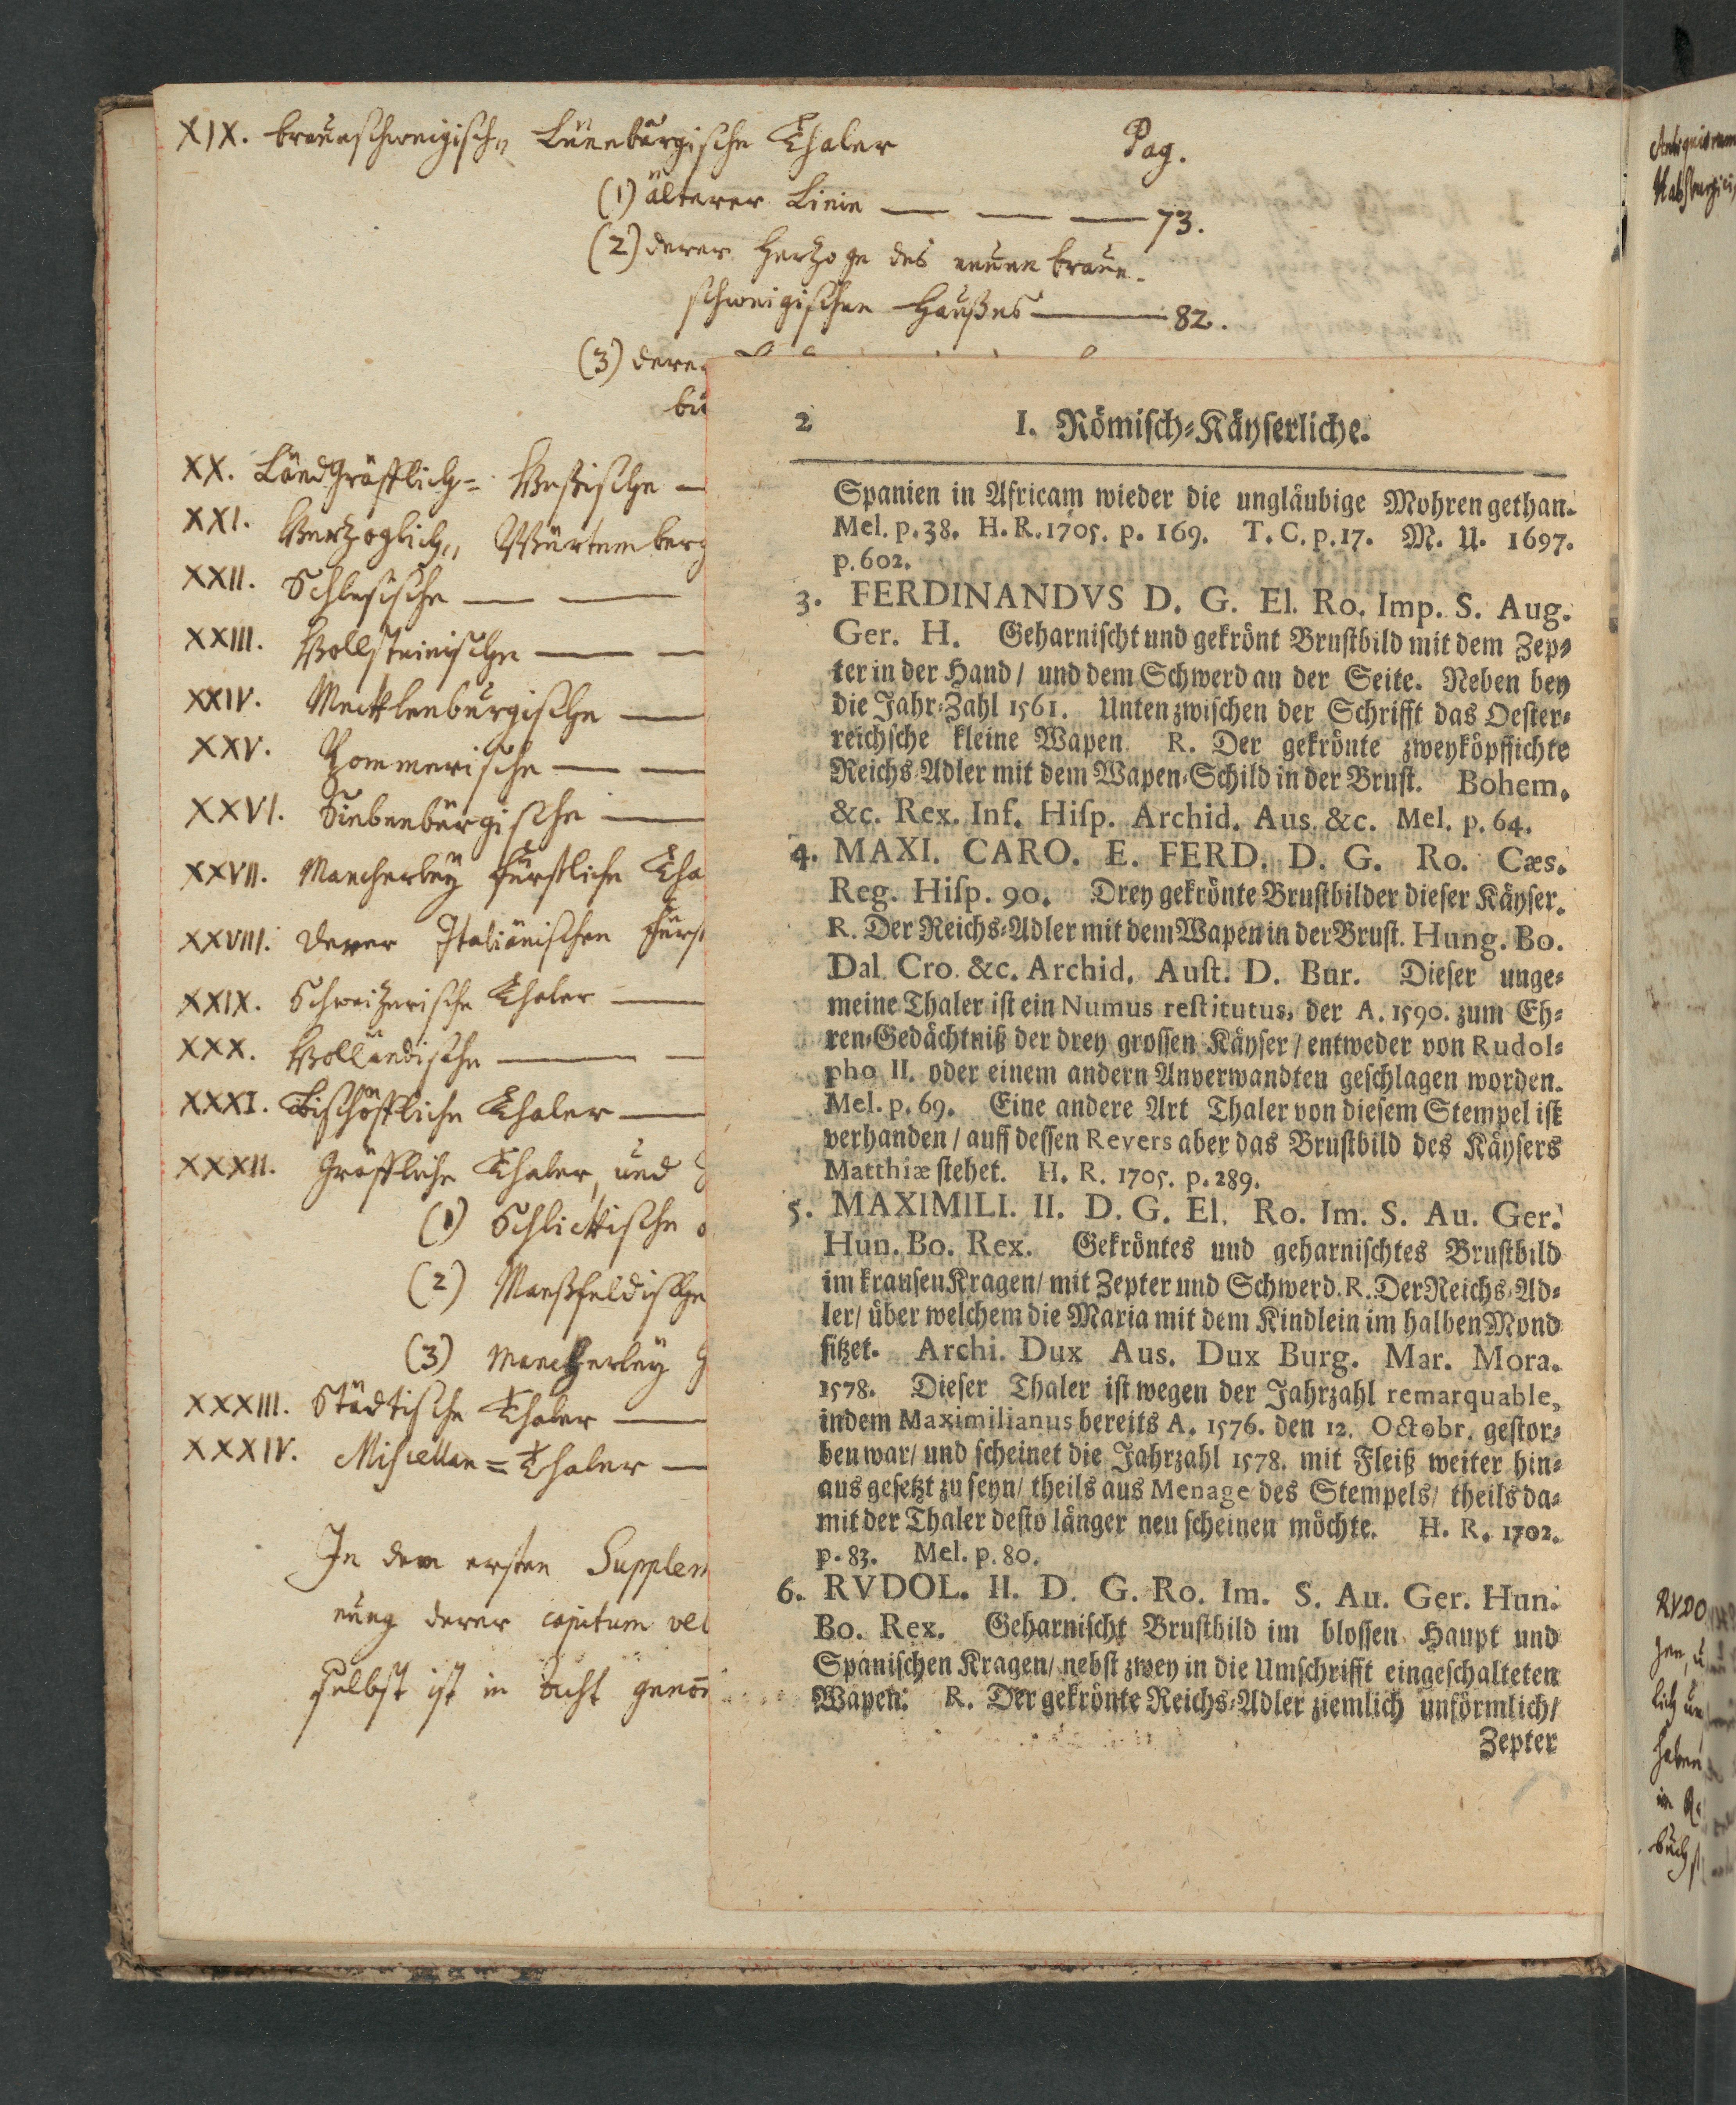 XIX. Braunschweigisch„ Lüneburgische Thaler Pag.
(1) älterer Linie — — — 73.
(2) derer Hertzoge des neuen braun-
schweigischen Haußes — 82.
(3) derer
bu
XX. Landgräfflich= Heßische —
XXI. Hertzoglich„ Würtemberg
XXII. Schlesische — —
XXIII. Hollsteinische — —
XXIV. Mecklenburgische —
XXV. Pommerische — —
XXVI. Siebenbürgische —
XXVII. Mancherley Fürstliche Tha
XXVIII. Derer Italiänischen Fürst
XXIX. Schweitzerische Thaler —
XXX. Holländische — —
XXXI. Bischöffliche Thaler —
XXXII. Gräffliche Thaler, und
(1) Schlickische
(2) Mansfeldische
(3) Mancherley
XXXIII. Städtische Thaler —
XXXIV. Miscellan=Thaler —
In dem ersten Supplem
nung derer capitum
selbst ist in acht genom
2 I. Römisch-Käyserliche.
Spanien in Africam wieder die ungläubige Mohren gethan.
Mel. p. 38. H. R. 1705. p. 169. T. C. p. 17. M. U. 1697.
p. 602.
3. FERDINANDVS D. G. El. Ro. Imp. S. Aug.
Ger. H. Geharnischt und gekrönt Brustbild mit dem Zep-
ter in der Hand / und dem Schwerd an der Seite. Neben bey
die Jahr-Zahl 1561. Unten zwischen der Schrifft das Oester-
reichsche kleine Wapen. R. Der gekrönte zweyköpffichte
Reichs-Adler mit dem Wapen-Schild in der Brust. Bohem.
&c. Rex. Inf. Hisp. Archid. Aus. &c. Mel. p. 64.
4. MAXI. CARO. E. FERD. D. G. Ro. Cæs.
Reg. Hisp. 90. Drey gekrönte Brustbilder dieser Käyser.
R. Der Reichs-Adler mit dem Wapen in der Brust. Hung. Bo.
Dal. Cro. &c. Archid. Aust. D. Bur. Dieser unge-
meine Thaler ist ein Numus restitutus, der A. 1590. zum Eh-
ren-Gedächtniß der drey grossen Käyser / entweder von Rudol-
pho II. oder einem andern Anverwandten geschlagen worden.
Mel. p. 69. Eine andere Art Thaler von diesem Stempel ist
verhanden / auff dessen Revers aber das Brustbild des Käysers
Matthiæ stehet. H. R. 1705. p. 289.
5. MAXIMILI. II. D. G. El. Ro. Im. S. Au. Ger.
Hun. Bo. Rex. Gekröntes und geharnischtes Brustbild
im krausen Kragen / mit Zepter und Schwerd. R. Der Reichs-Ad-
ler / über welchem die Maria mit dem Kindlein im halben Mond
sitzet. Archi. Dux Aus. Dux Burg. Mar. Mora.
1578. Dieser Thaler ist wegen der Jahrzahl remarquable,
indem Maximilianus bereits A. 1576. den 12. Octobr. gestor-
ben war / und scheinet die Jahrzahl 1578. mit Fleiß weiter hin-
aus gesetzt zu seyn / theils aus Menage des Stempels / theils da-
mit der Thaler desto länger neu scheinen möchte. H. R. 1702.
p. 83. Mel. p. 80.
6. RVDOL. II. D. G. Ro. Im. S. Au. Ger. Hun.
Bo. Rex. Geharnischt Brustbild im blossen Haupt und
Spanischen Kragen / nebst zwey in die Umschrifft eingeschalteten
Wapen. R. Der gekrönte Reichs-Adler ziemlich unförmlich /
Zepter
RVDO
haben